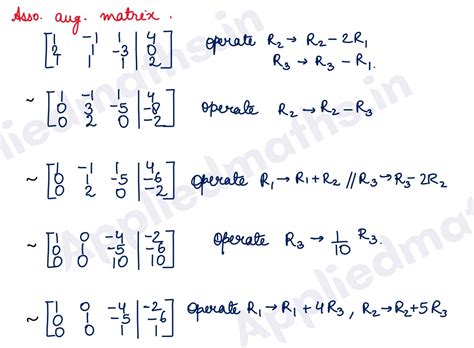 Asso. aug. matrix.
[1 -1 1 | 4
2 1 -3 | 0
1 1 1 | 2] operate R₂ → R₂ - 2R₁
R₃ → R₃ - R₁.
~ [1 -1 1 | 4
0 3 -5 | -8
0 2 0 | -2] operate R₂ → R₂ - R₃
~ [1 -1 1 | 4
0 1 -5 | -6
0 2 0 | -2] operate R₁ → R₁ + R₂ // R₃ → R₃ - 2R₂
~ [1 0 -4 | -2
0 1 -5 | -6
0 0 10 | 10] operate R₃ → 1/10 R₃.
~ [1 0 -4 | -2
0 1 -5 | -6
0 0 1 | 1] operate R₁ → R₁ + 4R₃, R₂ → R₂ + 5R₃
Appliedmaths.in
Appliedmaths.in